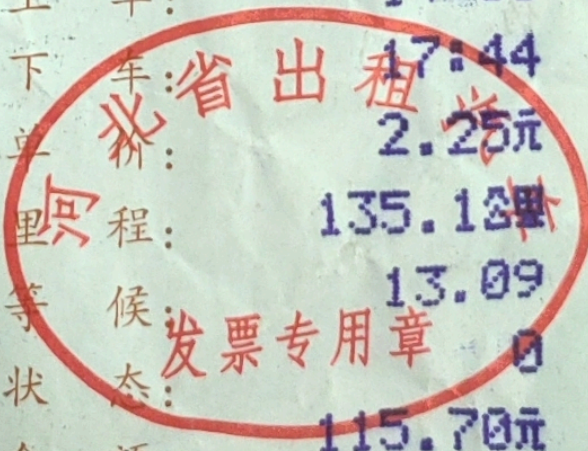 上车:
下车: 17:44
单价: 2.25元
里程: 135.1公里
等候: 13.09
状态: 0
115.70元
河北省出租汽车
发票专用章